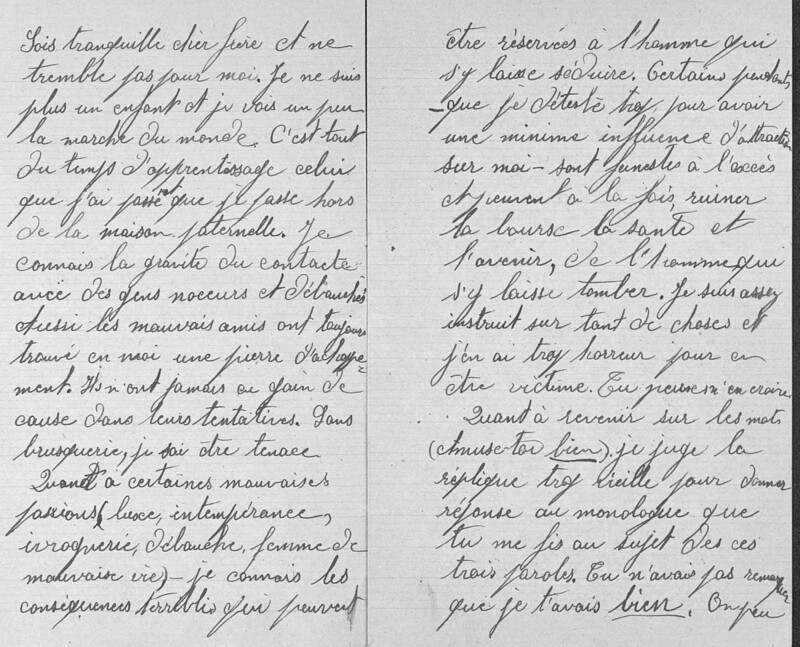 Sois tranquille cher frère et ne
tremble pas pour moi. Je ne suis
plus un enfant et je vois un peu
la marche du monde. C'est tout
du temps d'apprentissage celui
que j'ai passé et que je passe hors
de la maison paternelle. Je
connais la gravité du contacte
avec des gens noceurs et débauchés
Aussi les mauvais amis ont toujours
trouvé en moi une pierre d'achoppe-
ment. Ils n'ont jamais eu gain de
cause dans leurs tentatives. Sans
brusquerie, je sai être tenace
Quant à certaines mauvaises
passions (luxe, intempérance,
ivroquerie, débauche, femme de
mauvaise vie) - je connais les
conséquences terribles qui peuvent
être réservées à l'homme qui
s'y laisse séduire. Certains penchants
- que je déteste trop pour avoir
une minime influence d'attraction
sur moi - sont funestes à l'excès
et peuvent à la fois, ruiner
la bourse la santé et
l'avenir, de l'homme qui
s'y laisse tomber. Je suis assez
instruit sur tant de choses et
j'en ai trop horreur pour en
être victime. Tu peux m'en croire.
Quant à revenir sur les mots
(Amuse-toi bien) je juge la
réplique trop vieille pour donner
réponse au monologue que
tu me fis au sujet des ces
trois paroles. Tu n'avais pas remarquer
que je t'avais bien. On peu